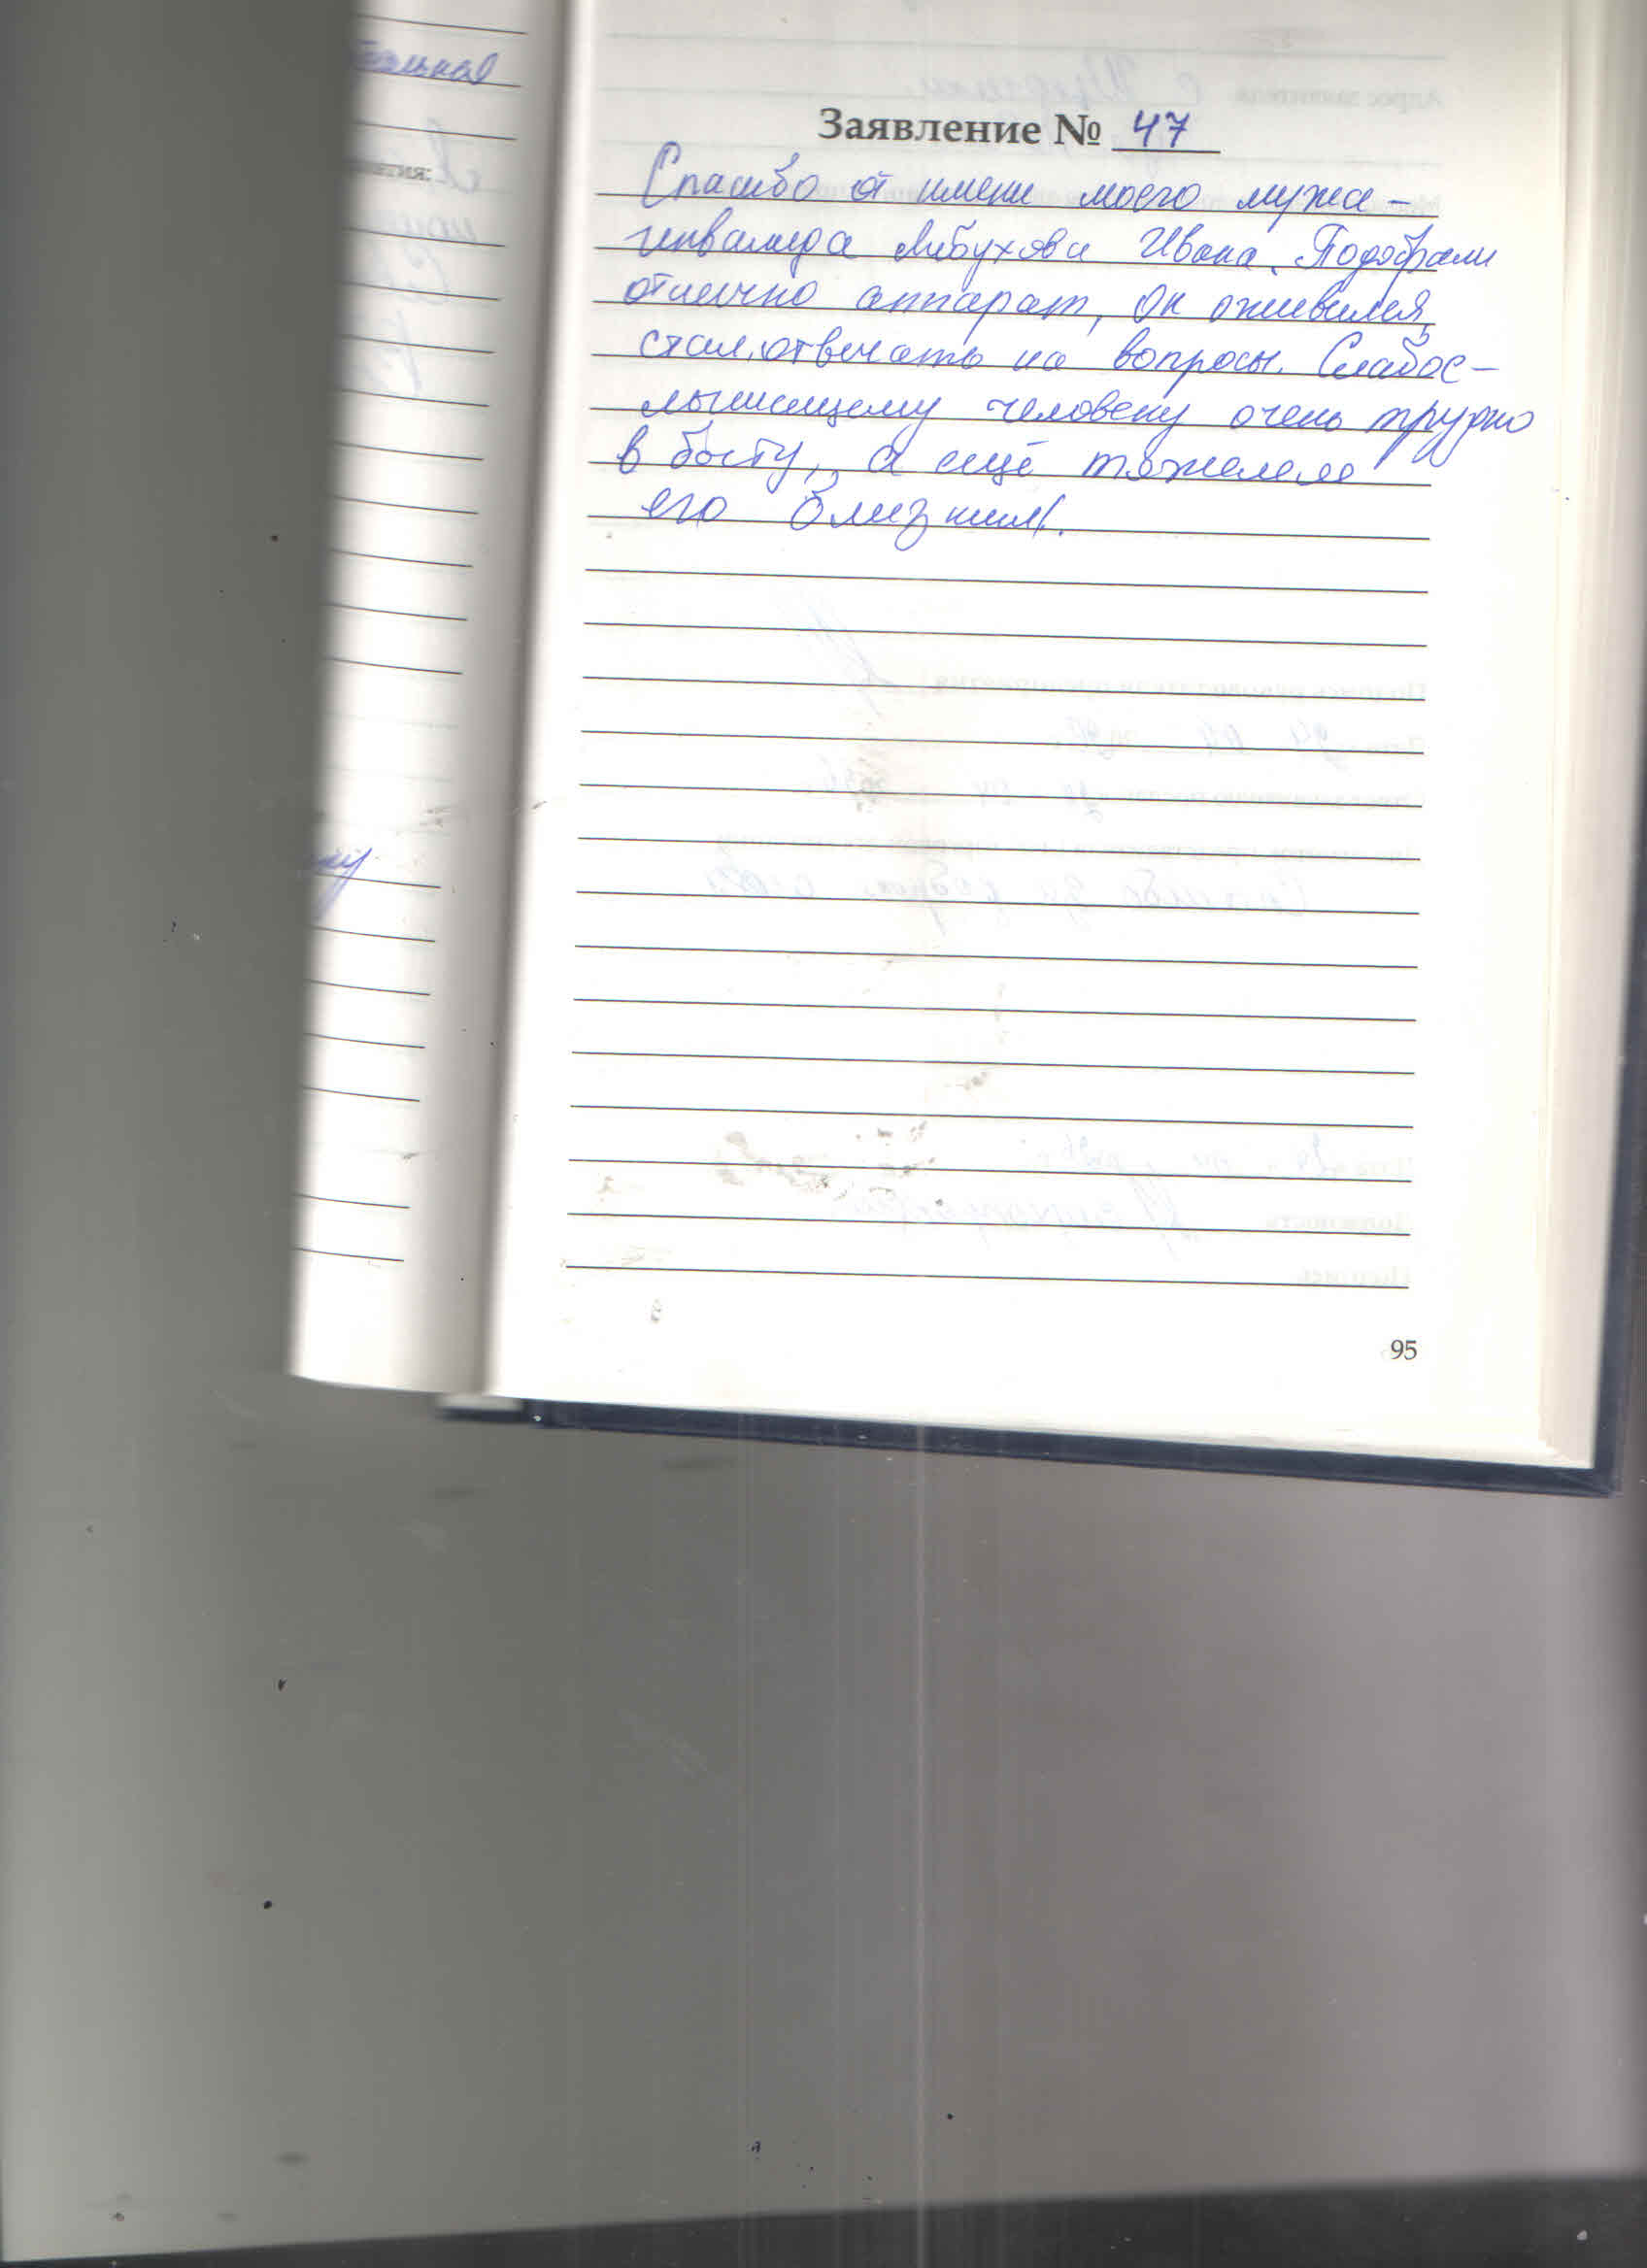 Заявление № 47
Спасибо от имени моего мужа -
инвалида Ивана. Подобрали
отлично аппарат, он оживился,
стал отвечать на вопросы. Слабос-
лышащему человеку очень трудно
в быту, а ещё тяжелее
его близким.
95